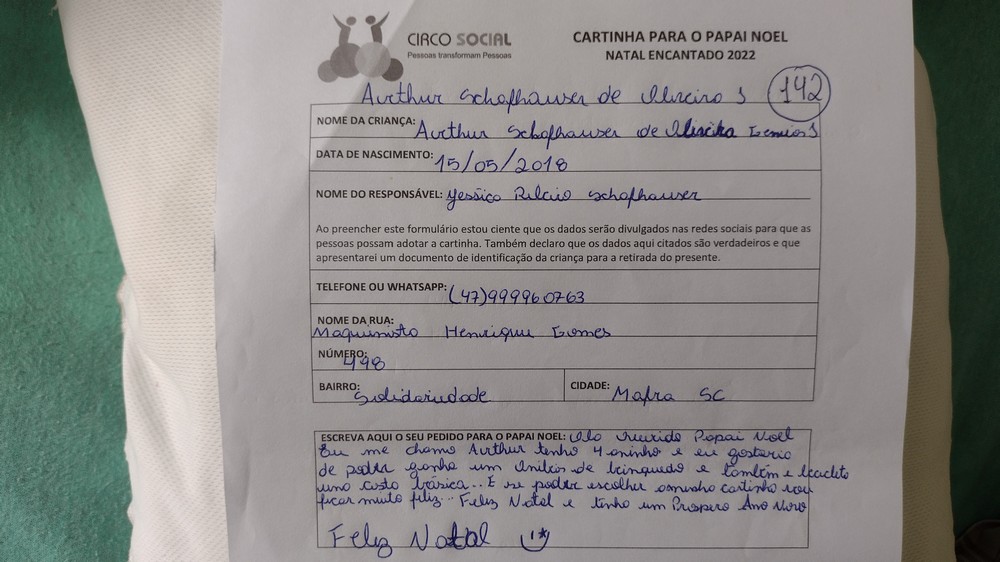 CIRCO SOCIAL
Pessoas transformam Pessoas
CARTINHA PARA O PAPAI NOEL
NATAL ENCANTADO 2022
Arthur Schafhauser de Oliveira 142
NOME DA CRIANÇA: Arthur Schafhauser de
DATA DE NASCIMENTO: 15/05/2018
NOME DO RESPONSÁVEL: Yessica Schafhauser
Ao preencher este formulário estou ciente que os dados serão divulgados nas redes sociais para que as
pessoas possam adotar a cartinha. Também declaro que os dados aqui citados são verdadeiros e que
apresentarei um documento de identificação da criança para a retirada do presente.
TELEFONE OU WHATSAPP: (47)999960763
NOME DA RUA:
Maquinista Henrique Gomes
NÚMERO:
498
BAIRRO: Solidariedade CIDADE: Mafra SC
ESCREVA AQUI O SEU PEDIDO PARA O PAPAI NOEL: Papai Noel
Eu me chamo Arthur tenho 4 aninho e eu gostaria
de poder ganha um de brinquedo e também
uma básica.. E se poder escolher cartinha vou
ficar muito feliz.. Feliz Natal e tenha um Prospero Ano Novo
Feliz Natal